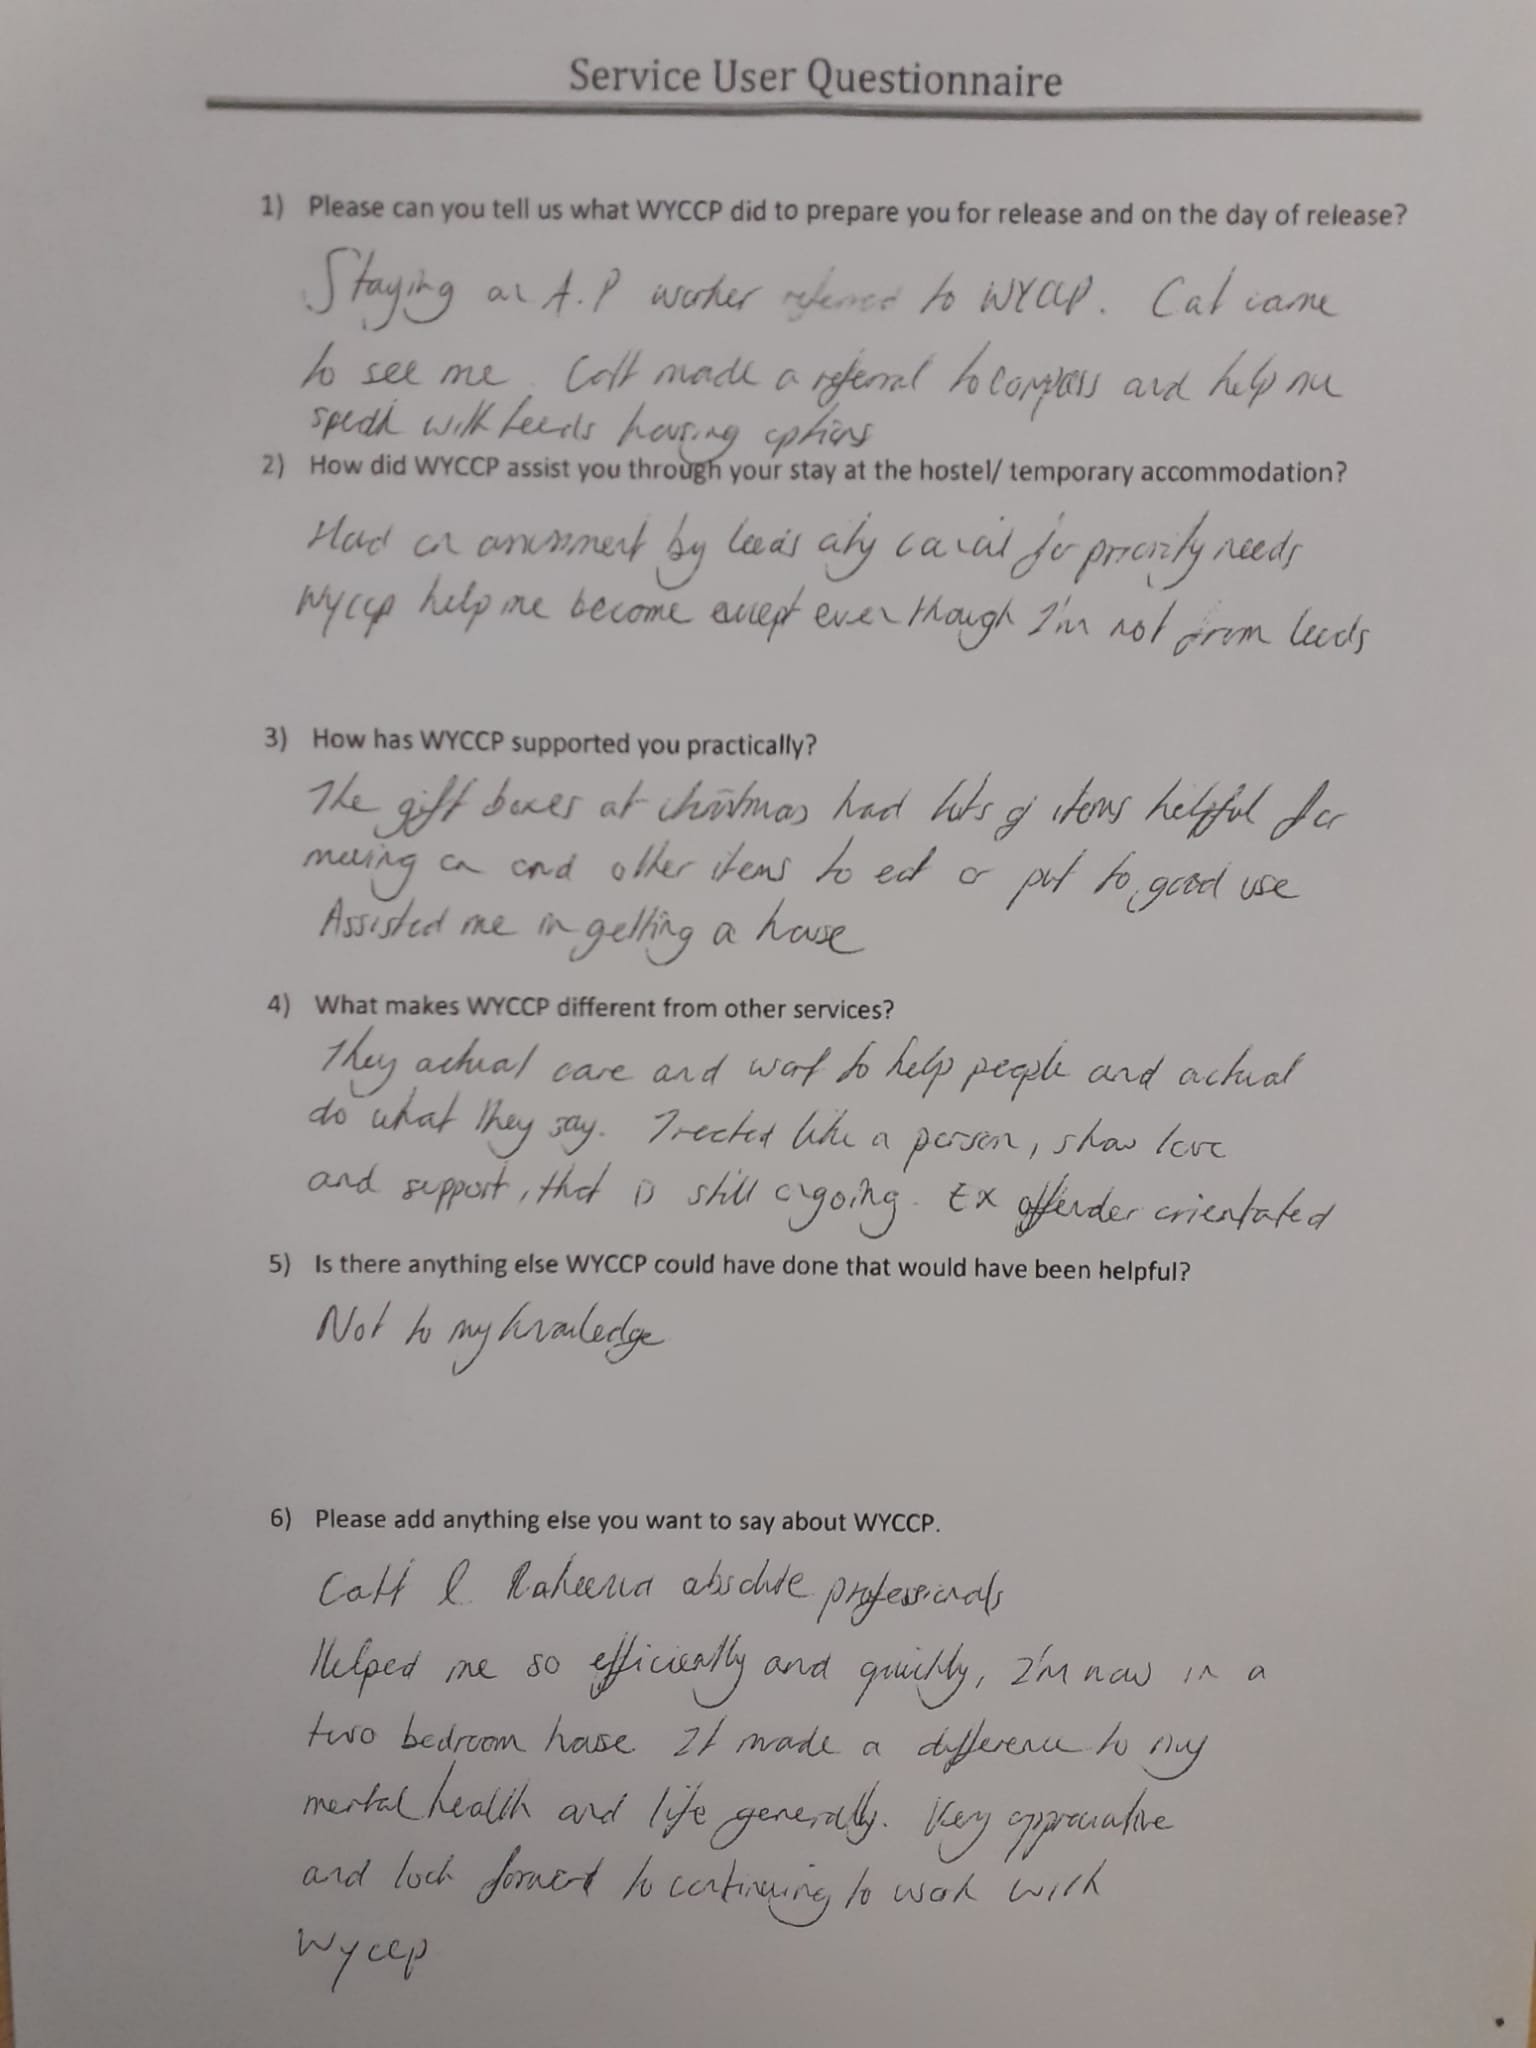 Service User Questionnaire
1) Please can you tell us what WYCCP did to prepare you for release and on the day of release?
Staying at A.P worker referred to WYCCP. Cat came
to see me. Catt made a referral to compass and help me
speak with Leeds housing options
2) How did WYCCP assist you through your stay at the hostel/ temporary accommodation?
Had an assessment by Leeds city council for priority needs
Wyccp help me become except even though I'm not from leeds
3) How has WYCCP supported you practically?
The gift boxes at christmas had lots of items helpful for
moving on and other items to eat or put to good use
Assisted me in getting a house
4) What makes WYCCP different from other services?
They actual care and want to help people and actual
do what they say. Treated like a person, show love
and support, that is still ongoing. Ex offender orientated
5) Is there anything else WYCCP could have done that would have been helpful?
Not to my knowledge
6) Please add anything else you want to say about WYCCP.
Catt & Raheena absolute professionals
Helped me so efficiently and quickly, I'm now in a
two bedroom house It made a difference to my
mental health and life generally. Very appreciative
and look forward to continuing to work with
Wyccp